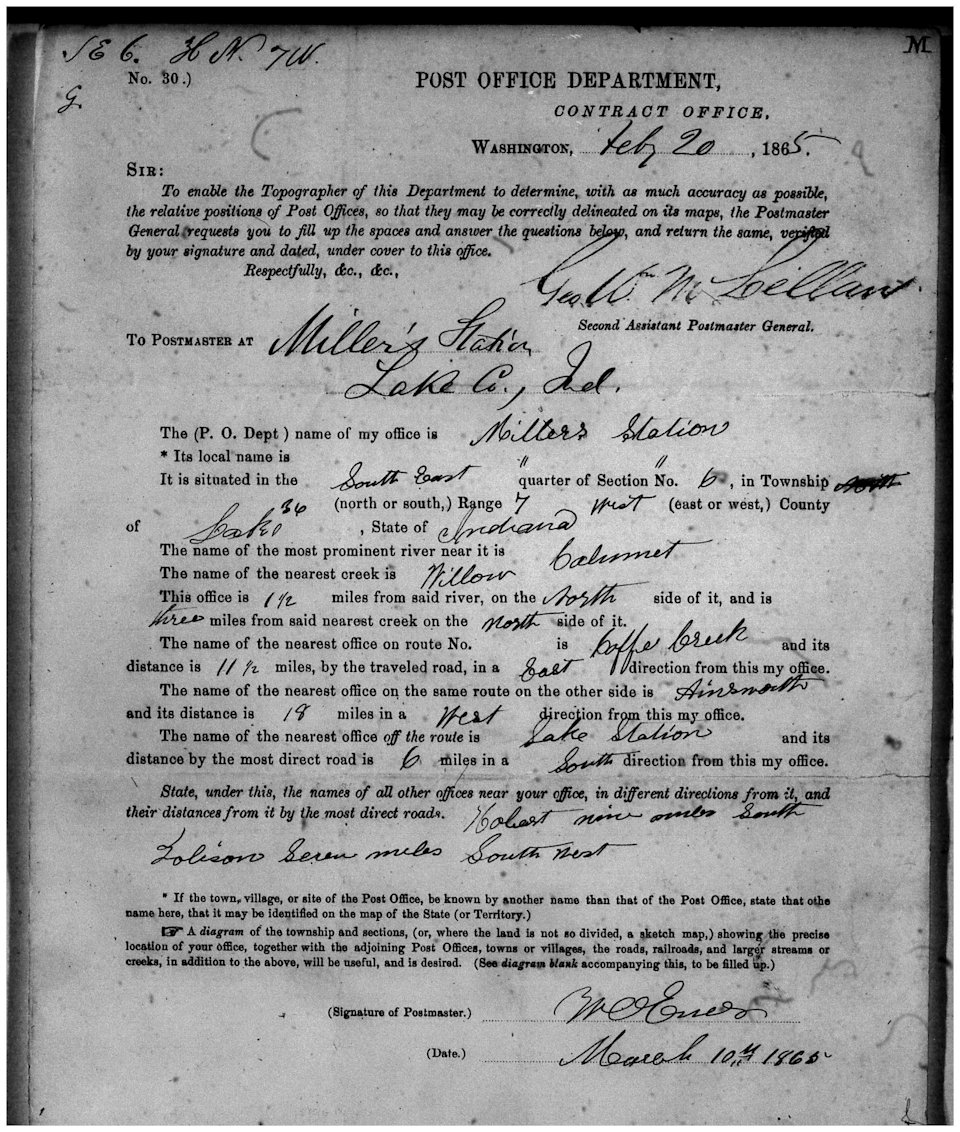 S E 6. N. 7W.
M
No. 30.)
G.
POST OFFICE DEPARTMENT,
CONTRACT OFFICE,
WASHINGTON, Feby 20, 1865.
SIR:
To enable the Topographer of this Department to determine, with as much accuracy as possible,
the relative positions of Post Offices, so that they may be correctly delineated on its maps, the Postmaster
General requests you to fill up the spaces and answer the questions below, and return the same, verified
by your signature and dated, under cover to this office.
Respectfully, &c., &c.,
Geo Wm McLellan.
Second Assistant Postmaster General.
TO POSTMASTER AT Miller's Station
Lake Co., Ind.
The (P. O. Dept) name of my office is Millers Station
* Its local name is " "
It is situated in the South East quarter of Section No. 6, in Township North
36 (north or south,) Range 7 West (east or west,) County
of Lake, State of Indiana
The name of the most prominent river near it is Calumet
The name of the nearest creek is Willow
This office is 1 1/2 miles from said river, on the North side of it, and is
three miles from said nearest creek on the north side of it.
The name of the nearest office on route No. is Coffe Creek and its
distance is 11 1/2 miles, by the traveled road, in a East direction from this my office.
The name of the nearest office on the same route on the other side is Ainsworth
and its distance is 18 miles in a West direction from this my office.
The name of the nearest office off the route is Lake Station and its
distance by the most direct road is 6 miles in a South direction from this my office.
State, under this, the names of all other offices near your office, in different directions from it, and
their distances from it by the most direct roads. Hobart nine miles South
Tolison Seven miles South West
* If the town, village, or site of the Post Office, be known by another name than that of the Post Office, state that othe
name here, that it may be identified on the map of the State (or Territory.)
☞ A diagram of the township and sections, (or, where the land is not so divided, a sketch map,) showing the precise
location of your office, together with the adjoining Post Offices, towns or villages, the roads, railroads, and larger streams or
creeks, in addition to the above, will be useful, and is desired. (See diagram blank accompanying this, to be filled up.)
(Signature of Postmaster.) W O
(Date.) March 10th 1865